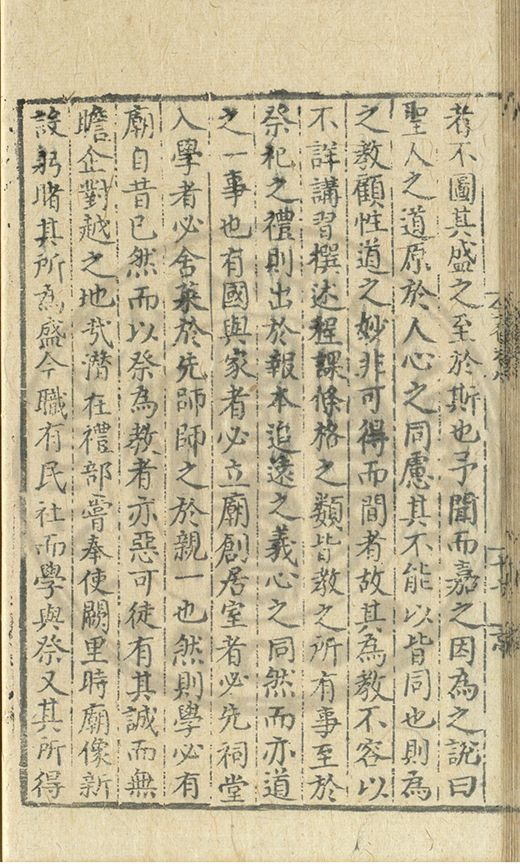 者不圖其盛之至於斯也予聞而嘉之因為之說曰
聖人之道原於人心之同慮其不能以皆同也則為
之教顧性道之妙非可得而聞者故其為教不容以
不詳講習撰述程課條格之類皆教之所有事至於
祭祀之禮則出於報本追遠之義心之同然而亦道
之一事也有國與家者必立廟創居室者必先祠堂
入學者必舍菜於先師師之於親一也然則學必有
廟自昔已然而以祭為教者亦惡可徒有其誠而無
瞻企對越之地哉潛在禮部嘗奉使闕里時廟像新
設躬睹其所為盛今職有民社而學與祭又其所得